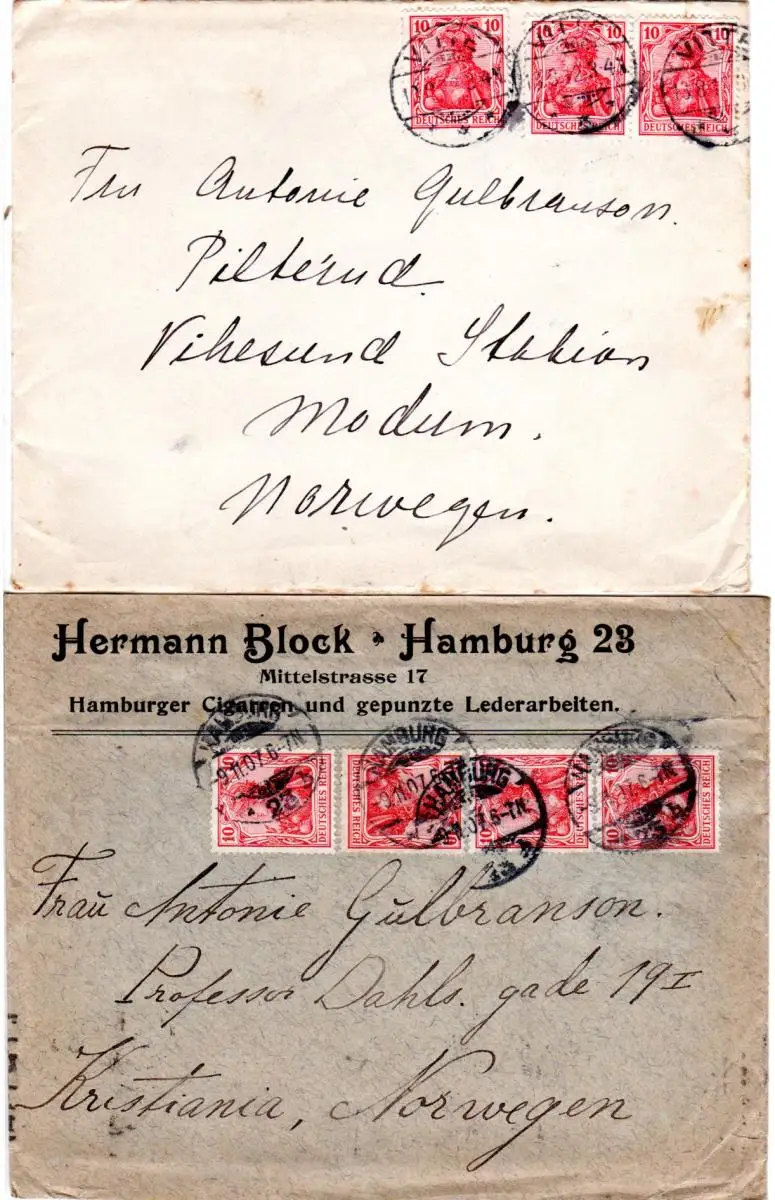 10 10 10 10 10 10
DEUTSCHES REICH DEUTSCHES REICH DEUTSCHES REICH
Fru Antonie Gulbranson.
Pilterud.
Vikesund Station
Modum.
Norwegen.
Hermann Block * Hamburg 23
Mittelstrasse 17
Hamburger Cigarren und gepunzte Lederarbeiten.
HAMBURG HAMBURG HAMBURG HAMBURG
9.11.07.6-7N
10 DEUTSCHES REICH DEUTSCHES REICH 10 DEUTSCHES REICH 10 DEUTSCHES REICH
Fraŭ Antonie Gŭlbranson.
Professor Dahls. gade 19 I
Kristiania, Norwegen